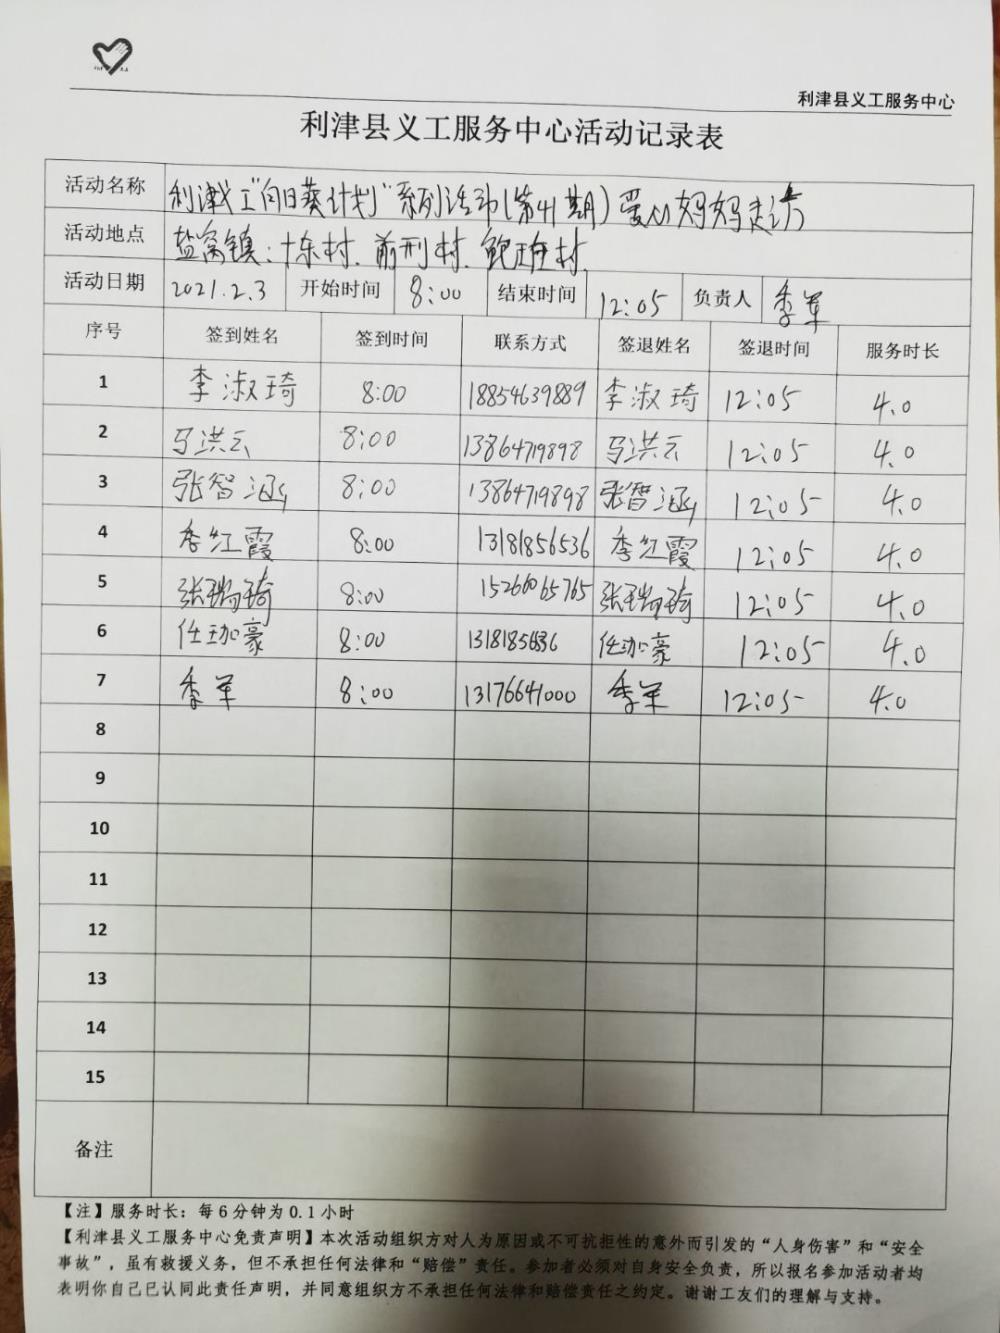 利津县义工服务中心
利津县义工服务中心活动记录表
活动名称 利津义工"向日葵计划"系列活动(第41期)爱心妈妈走访
活动地点 盐窝镇:十东村、前邢村、鲍王庄村、
活动日期 2021.2.3 开始时间 8:00 结束时间 12:05 负责人 季军
序号 签到姓名 签到时间 联系方式 签退姓名 签退时间 服务时长
1 李淑琦 8:00 18854639889 李淑琦 12:05 4.0
2 马洪云 8:00 13864719898 马洪云 12:05 4.0
3 张智涵 8:00 13864719898 张智涵 12:05 4.0
4 季红霞 8:00 13181856536 季红霞 12:05 4.0
5 张瑞琦 8:00 15266065765 张瑞琦 12:05 4.0
6 任珈豪 8:00 任珈豪 12:05 4.0
7 季军 8:00 13176641000 季军 12:05 4.0
8
9
10
11
12
13
14
15
备注
【注】服务时长:每6分钟为0.1小时
【利津县义工服务中心免责声明】本次活动组织方对人为原因或不可抗拒性的意外而引发的“人身伤害”和“安全
事故”,虽有救援义务,但不承担任何法律和“赔偿”责任。参加者必须对自身安全负责,所以报名参加活动者均
表明你自己已认同此责任声明,并同意组织方不承担任何法律和赔偿责任之约定。谢谢工友们的理解与支持。